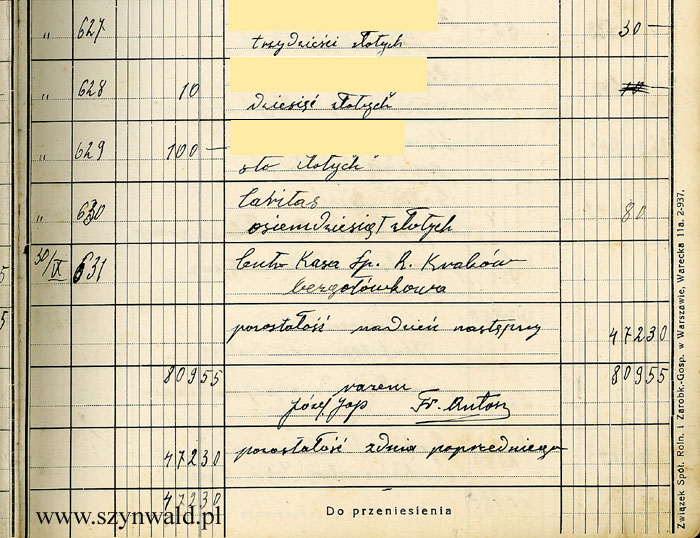 " 627 30 —
trzydzieści złotych
" 628 10 10
dziesięć złotych
" 629 100 —
sto złotych
" 630 Caritas 80
osiemdziesiąt złotych
30/VI 631 Centr Kasa Sp. R. Kraków
bezgotówkowa
pozostałość nadzień następny 47230
80955 80955
razem
Józef Jop Fr. Antosz
pozostałość zdnia poprzedniego
47230
47230
Do przeniesienia
www.szynwald.pl
Związek Spół. Roln. i Zarobk.-Gosp. w Warszawie, Warecka 11a. 2-937.